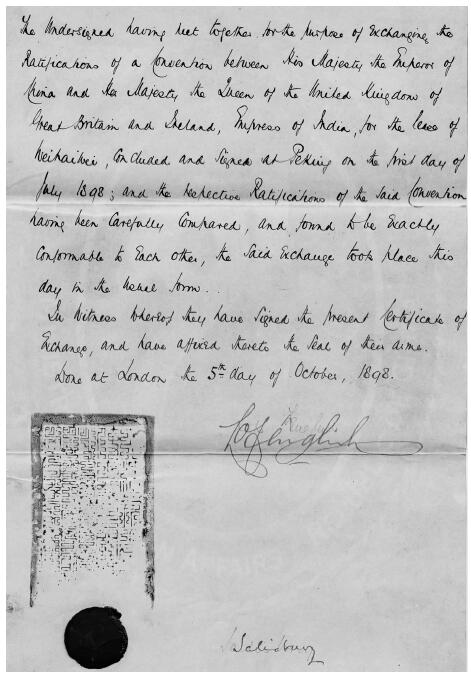 The Undersigned having met together for the purpose of Exchanging the
Ratifications of a Convention between His Majesty the Emperor of
China and Her Majesty the Queen of the United Kingdom of
Great Britain and Ireland, Empress of India, for the lease of
Weihaiwei, Concluded and Signed at Peking on the first day of
July 1898; and the respective Ratifications of the Said Convention
having been Carefully Compared, and found to be Exactly
Conformable to Each other, the Said Exchange took place this
day in the usual form.
In Witness whereof they have Signed the present Certificate of
Exchange, and have affixed thereto the Seal of their arms.
Done at London the 5th day of October, 1898.
Salisbury